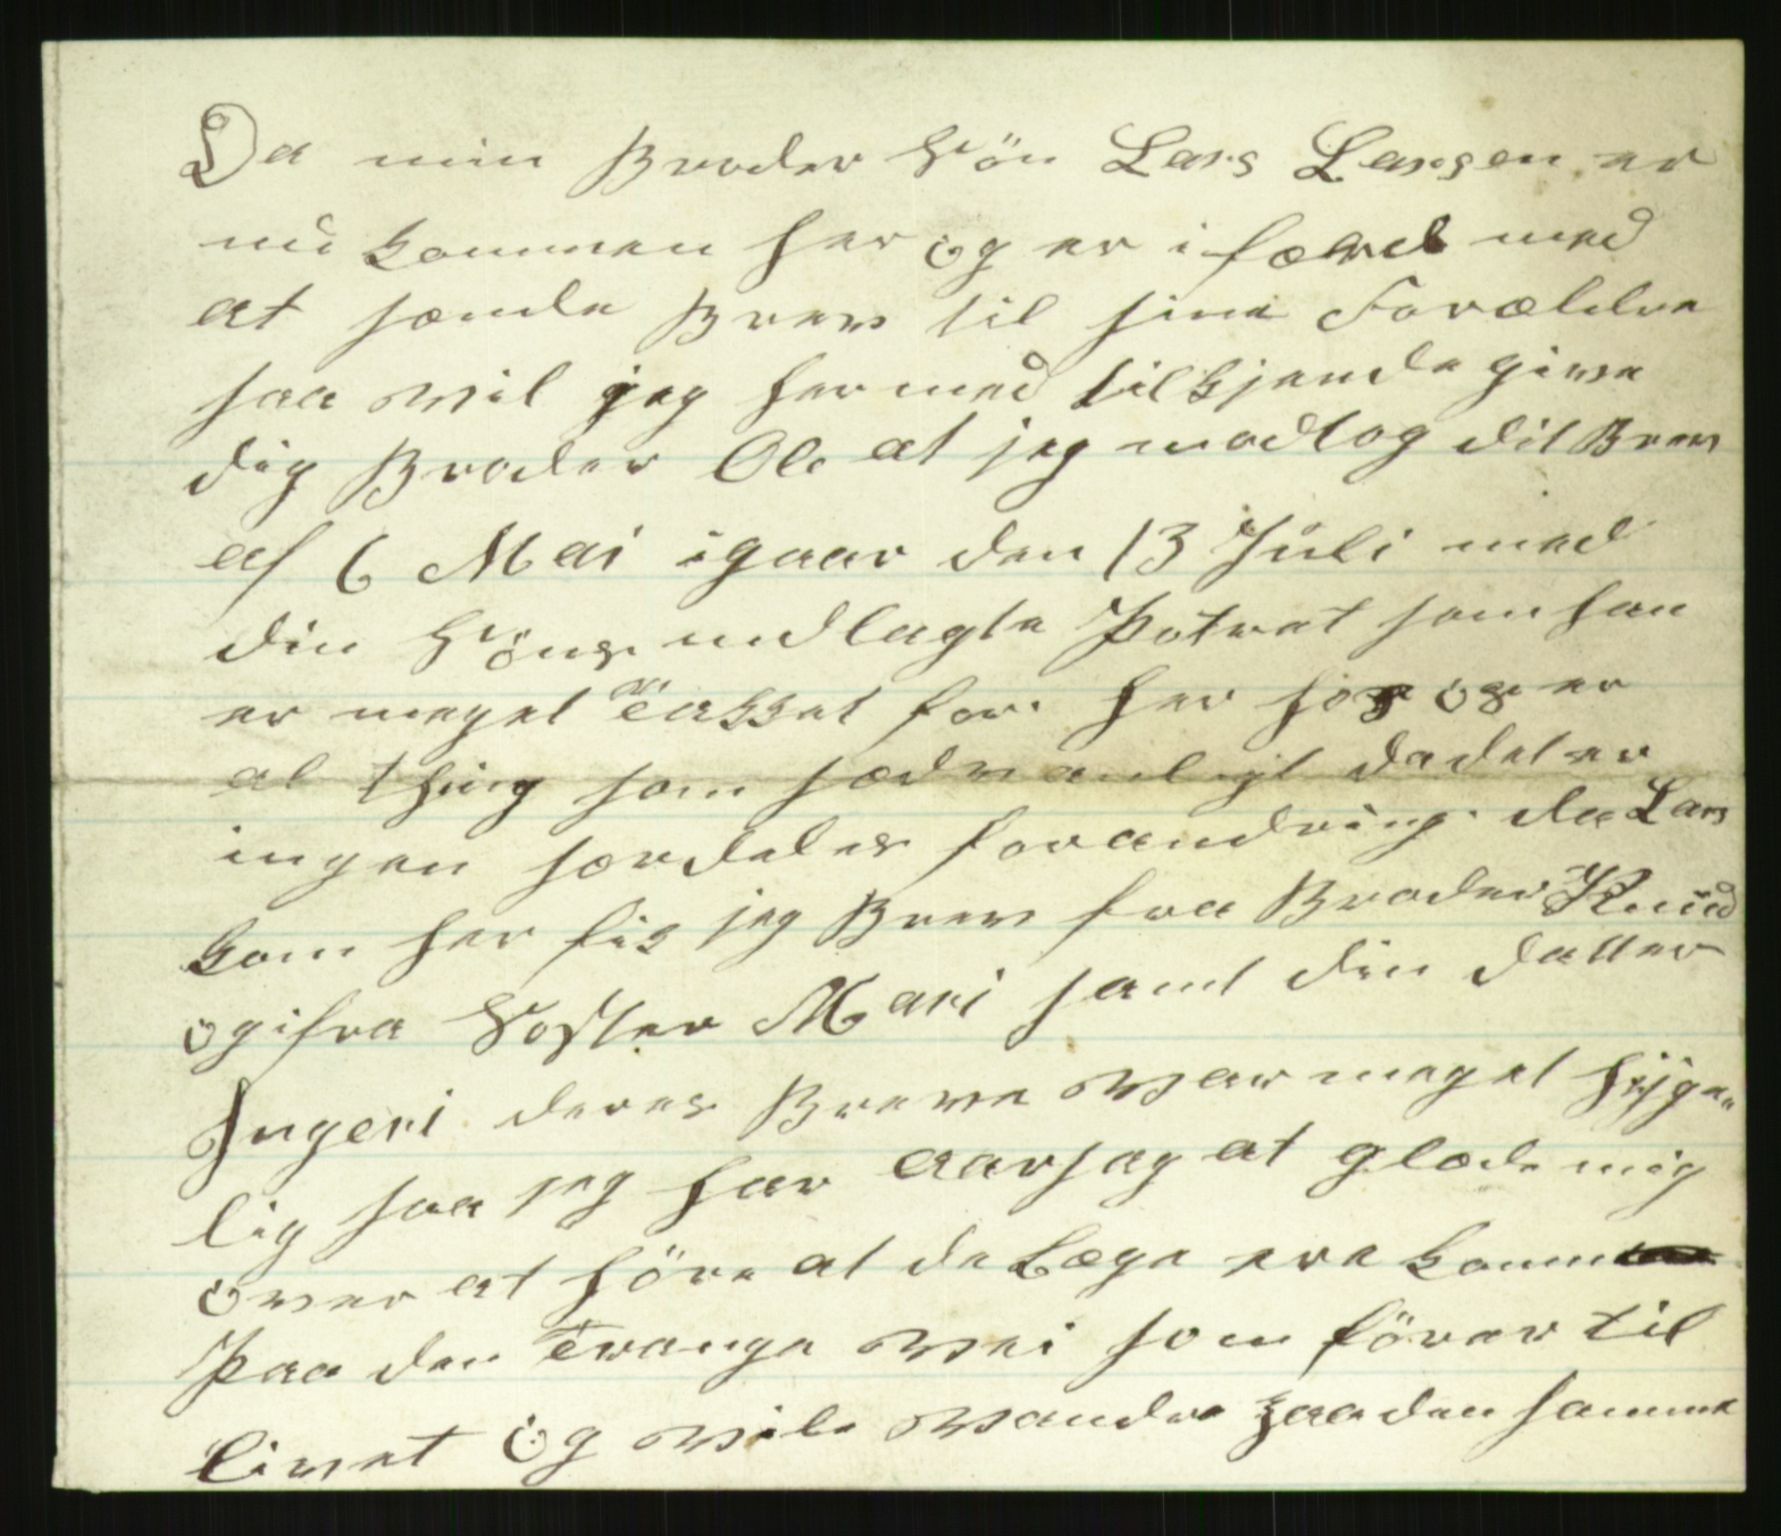 Da min Broder Sön Lars Larsen er
nu kommen her og er i færd med
at sænde Brev til sine Forældre
saa vil jeg hermed tilkjende give
dig Broder Ole at jeg modtog dit Brev
af 6 Mai igaar den 13 Juli med
din Söns indlagte Potret som han
er meget Takket for. her hos os er
al thing som sædvanligt dedet er
ingen særdeles forandring. da Lars
kom her fik jeg Brev fra Broder Knud
og ifra Søster Mari samt din datter
Ingeri deres Breve var meget hyge-
lig saa jeg har aarsag at glæde mig
over at höre at de Bege ere komm
Paa den Trange Vei som förer til
livet og vile vandre paa den samme